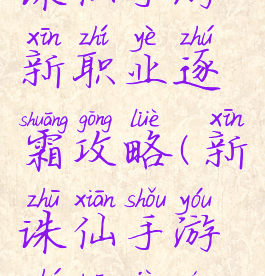 诛仙手游
xīn zhí yè zhú
新职业逐
shuāng gōng lüè xīn
霜攻略(新
zhū xiān shǒu yóu
诛仙手游